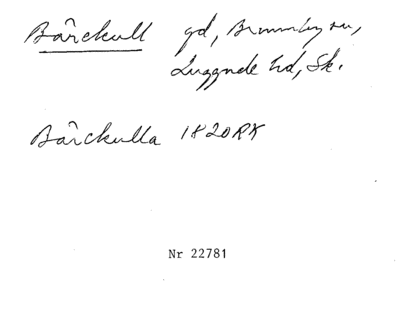 Bârckull gd, Brunnby sn,
Luggude hd, Sk.
Bârckulla 1820 RK
Nr 22781